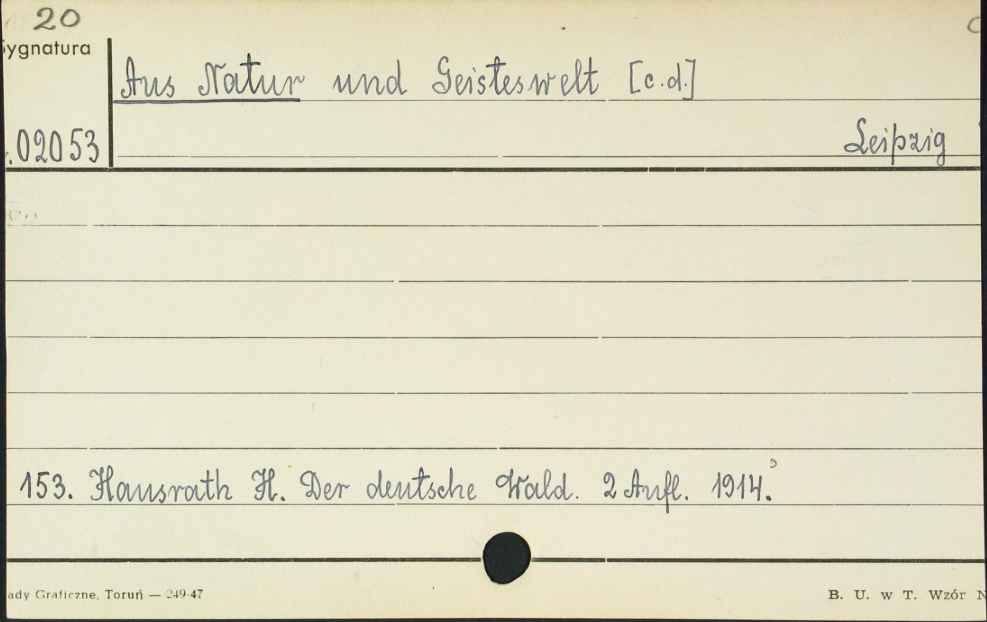 20
ygnatura
Aus Natur und Geisteswelt [c.d.]
.02053
Leipzig
153. Hausrath H. Der deutsche Wald. 2 Aufl. 1914.
ady Graficzne, Toruń — 249-47
B. U. w T. Wzór N